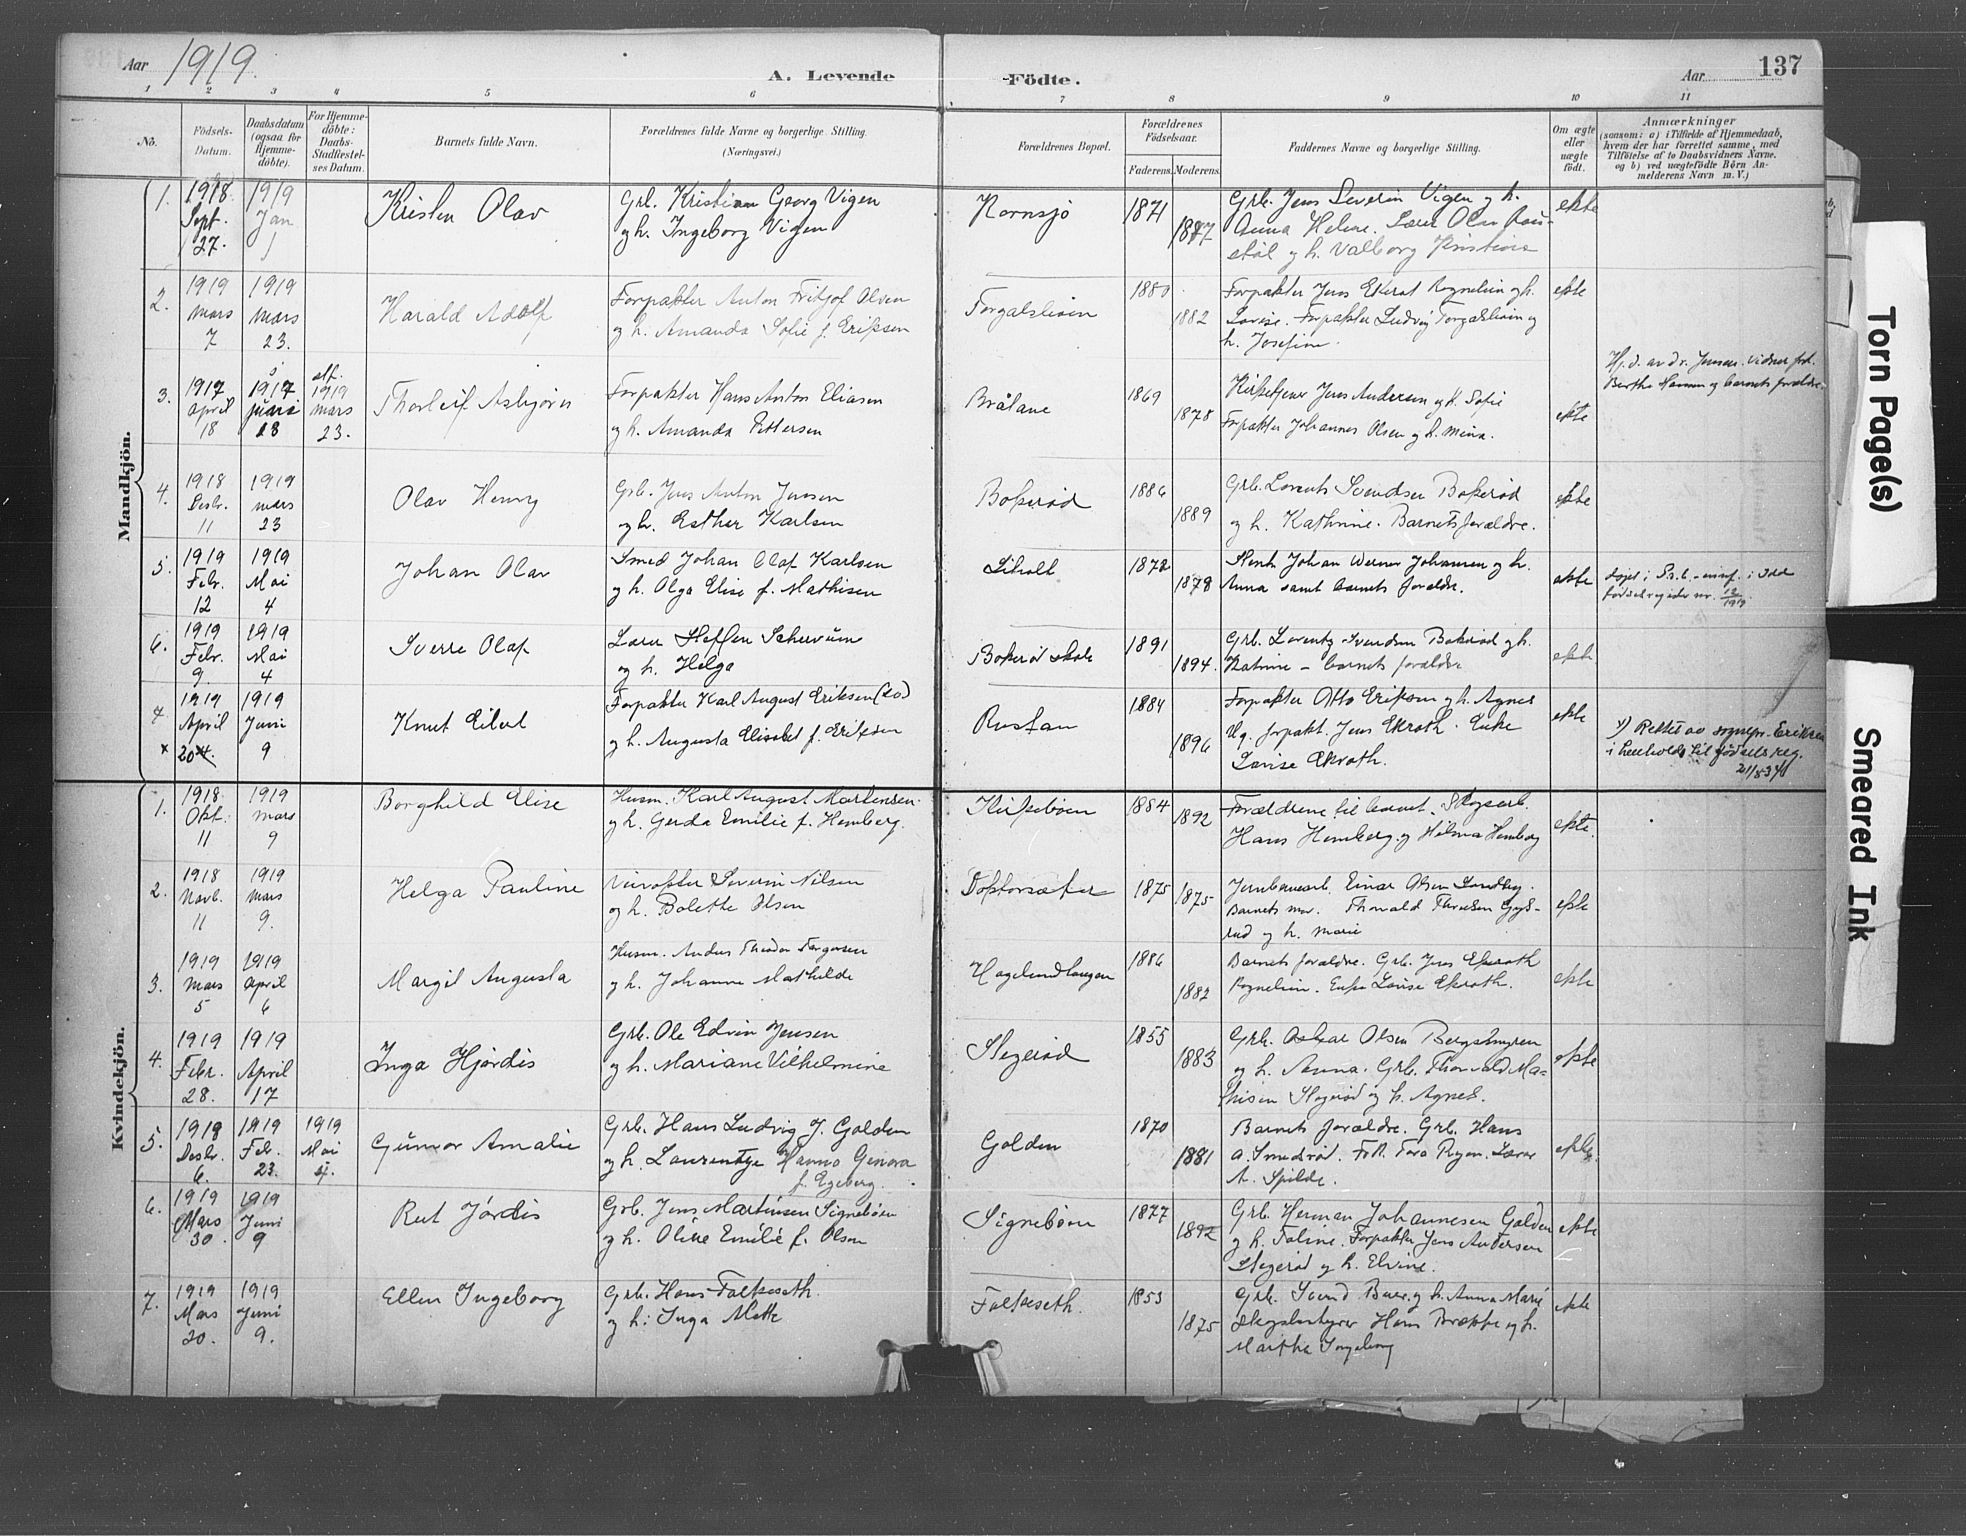 Aar 1919. A. Levende Födte. Aar 137
1 2 3 4 5 6 7 8 9 10 11
No. Födsels-Datum. Daabsdatum (ogsaa for Hjemme-döbte). For Hjemme-döbte: Daabs-Stadfæstel-ses Datum. Barnets fulde Navn. Forældrenes fulde Navne og borgerlige Stilling. (Næringsvei.) Forældrenes Bopæl. Forældrenes Födselsaar. Faderens. Moderens. Faddernes Navne og borgerlige Stilling. Om ægte eller uægte födt. Anmærkninger (saasom: a) i Tilfælde af Hjemmedaab, hvem der har forrettet samme, med Tilföielse af to Daabsvidners Navne. og b) ved uægtefödte Börn An-melderens Navn m. V.)
Mandkjön.
1. 1918 Sept. 27. 1919 Jan 1 Kristen Olav
Grb. Kristian Georg Vigen
og h. Ingeborg Vigen
Kornsjø 1871 1877
Grb. Jens Severin Vigen og h.
Anna Helene. Lærer Olav
og h. Valborg Kristine
ekte
2. 1919 Mars 7 1919 Mars 23. Harald Adolf
Forpakter Anton Fritjof Olsen
og h. Amanda Sofie f. Eriksen
Torgalsløien 1880 1882
Forpakter Jens Ekerot Rognelien og h.
Lovise. Forpakter Ludvig Torgalsløien og
h. Josefine.
ekte
3. 1917 April 18 1917 Juni 18 1919 Mars 23. Thorleif Asbjørn
Forpakter Hans Anton Eliasen
og h. Amanda Pettersen
Bråtane 1869 1878
Kirketjener Jens Andersen og h. Sofie
Forpakter Johannes Olsen og h. Mina.
ekte
Hj.d. av dr. Jensen. Vidner frk.
Berthe Hansen og barnets forældre.
4. 1918 Desbr. 11 1919 Mars 23 Olav Henry
Grb. Jens Anton Jensen
og h. Esther Karlsen
Bokerød 1886 1889
Grb. Lorents Svendsen Bokerød
og h. Kathrine. Barnets forældre.
ekte
5. 1919 Febr. 12 1919 Mai 4 Johan Olav
Smed Johan Olaf Karlsen
og h. Olga Elise f. Mathisen
Liholt 1872 1878
Johan Werner Johansen og h.
Anna samt barnets forældre.
ekte
i Idd
fødselsregister nr. 12/1919.
6. 1919 Febr. 9. 1919 Mai 4 Sverre Olaf
Lærer Steffen Schervum
og h. Helga
Bokerød skole 1891 1894.
Grb. Lorentz Svendsen Bokerød og h.
Katrine – barnets forældre
ekte
7 x 1919 April 20 1919 Juni 9 Knut Eilert
Forpakter Karl August Eriksen
og h. Augusta Elisabet f. Eriksen
Rustan 1884 1896
Forpakter Otto Eriksen og h. Agnes
Ug. forpakt. Jens Ekroth. Enke
Lovise Ekroth.
ekte
x) Rettet av sognepr. Eriksen
i henhold til fødselsreg.
Kvindekjön.
1. 1918 Okt. 11 1919 Mars 9 Borghild Elise
Husm. Karl August Martensen
og h. Gerda Emilie f. Hemberg.
Kirkebøen 1884 1892
Forældrene til barnet. Skogsarb.
Hans Hemberg og Hilma Hemberg
ekte.
2. 1918 Novb. 11 1919 Mars 9. Helga Pauline
Severin Nilsen
og h. Bolette Olsen
Doktorsæter 1875 1875
Jernbanearb. Einar Olsen Sandbg.
Barnets mor. Thorvald
og h. Marie
ekte
3. 1919 Mars 5 1919 April 6 Margit Augusta
Husm. Anders Theodor Torgersen
og h. Johanne Mathilde
Hagelundhaugen 1886 1882
Barnets forældre. Grb. Jens Ekeroth
Rognelien. Enke Lovise Ekroth.
ekte
4. 1919 Febr. 28. 1919 April 17 Inga Hjørdis
Grb. Ole Edvin Jensen
og h. Mariane Vilhelmine
Stegerød 1855 1883
Grb. Oskar Olsen Bergsmyren
og h. Anna. Grb. Thorvald Ma-
thisen Stegerød og h. Agnes.
ekte
5. 1918 Desbr. 6. 1919 Feb. 23. 1919 Mai 4. Gunvor Amalie
Grb. Hans Ludvig J. Golden
og h. Laurentze Hanno Genora
f. Egeberg.
Golden 1870 1881
Barnets forældre. Grb. Hans
A. Smedsrød. Frk. Tora Ryen. Lærer
A. Spilde.
ekte
6. 1919 Mars 30. 1919 Juni 9 Rut Jørdis
Grb. Jens Martinsen Signebøen
og h. Oline Emilie f. Olsen
Signebøen 1877 1892
Grb. Herman Johannesen Golden
og h. Faline. Forpakter Jens Andersen
Stegerød og h. Elvine.
ekte
7. 1919 Mars 20. 1919 Juni 9. Ellen Ingeborg
Grb. Hans Falkeseth.
og h. Inga Mette
Falkeseth. 1853 1875
Grb. Svend Buer og h. Anna Marie
Skogbestyrer Hans Brække og h.
Martha Ingeborg
ekte
Torn Page(s)
Smeared Ink